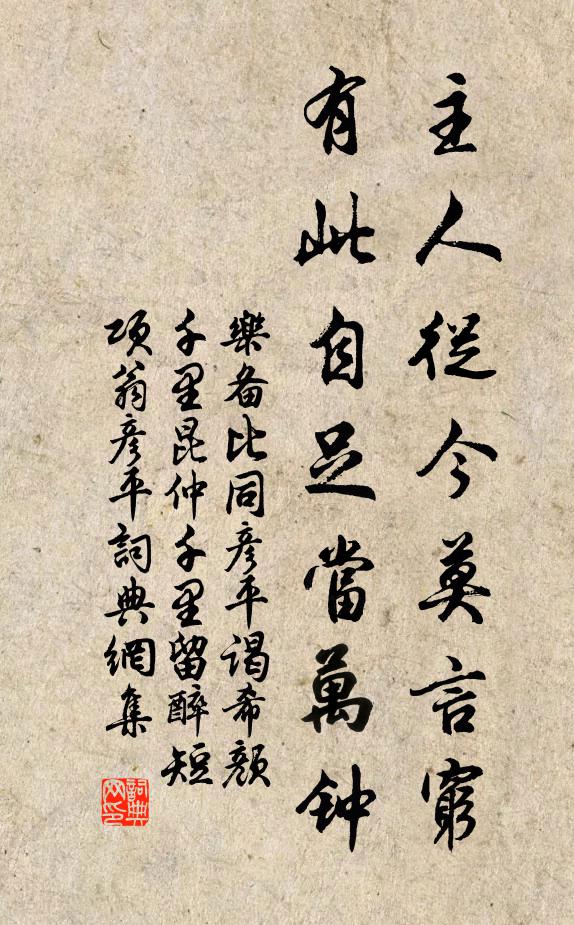 主人從今莫言窮
有此自足當萬钟
樂备比同彦平谒希颜
千里昆仲千里留醉短
项翁彦平詞典網集
詞典网印